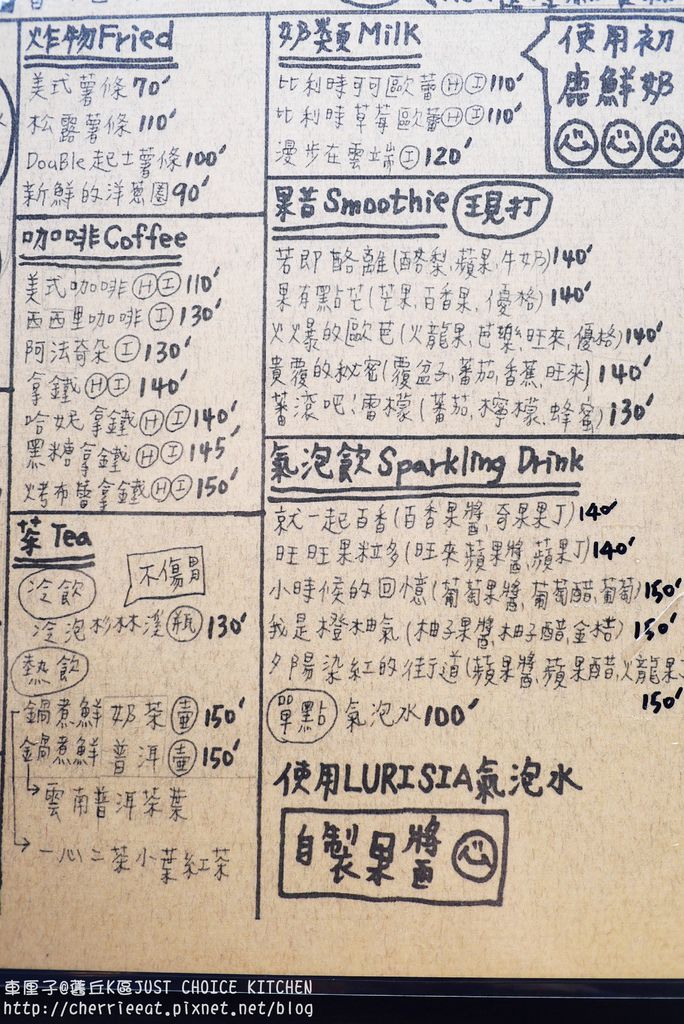 炸物Fried
美式薯條70'
松露薯條110'
Double起士薯條100'
新鮮的洋蔥圈90'
咖啡Coffee
美式咖啡ⒽⒾ110'
西西里咖啡Ⓘ130'
阿法奇朵Ⓘ130'
拿鐵ⒽⒾ140'
哈妮拿鐵ⒽⒾ140'
黑糖拿鐵ⒽⒾ145'
烤布蕾拿鐵ⒽⒾ150'
茶Tea
冷飲
不傷胃
冷泡杉林溪瓶130'
熱飲
鍋煮鮮奶茶壺150'
鍋煮鮮普洱壺150'
雲南普洱茶葉
一心二茶小葉紅茶
奶類Milk
比利時可可歐蕾ⒽⒾ110'
比利時草莓歐蕾ⒽⒾ110'
漫步在雲端Ⓘ120'
使用初
鹿鮮奶
果昔Smoothie
現打
若即酪離(酪梨,蘋果,牛奶)140'
果有點芒(芒果,百香果,優格)140'
火火暴的歐芭(火龍果,芭樂,旺來,優格)140'
貴覆的秘密(覆盆子,蕃茄,香蕉,旺來)140'
蕃滾吧!雷檬(蕃茄,檸檬,蜂蜜)130'
氣泡飲Sparkling Drink
就一起百香(百香果醬,奇果果丁)140'
旺旺果粒多(旺來,蘋果醬,蘋果丁)140'
小時候的回憶(葡萄果醬,葡萄醋,葡萄)150'
我是橙柚氣(柚子果醬,柚子醋,金桔)150'
夕陽染紅的街道(蘋果醬,蘋果醋,火龍果
150'
單點 氣泡水100'
使用LURISIA氣泡水
自製果醬
車厘子@舊丘K區JUST CHOICE KITCHEN
http://cherrieeat.pixnet.net/blog